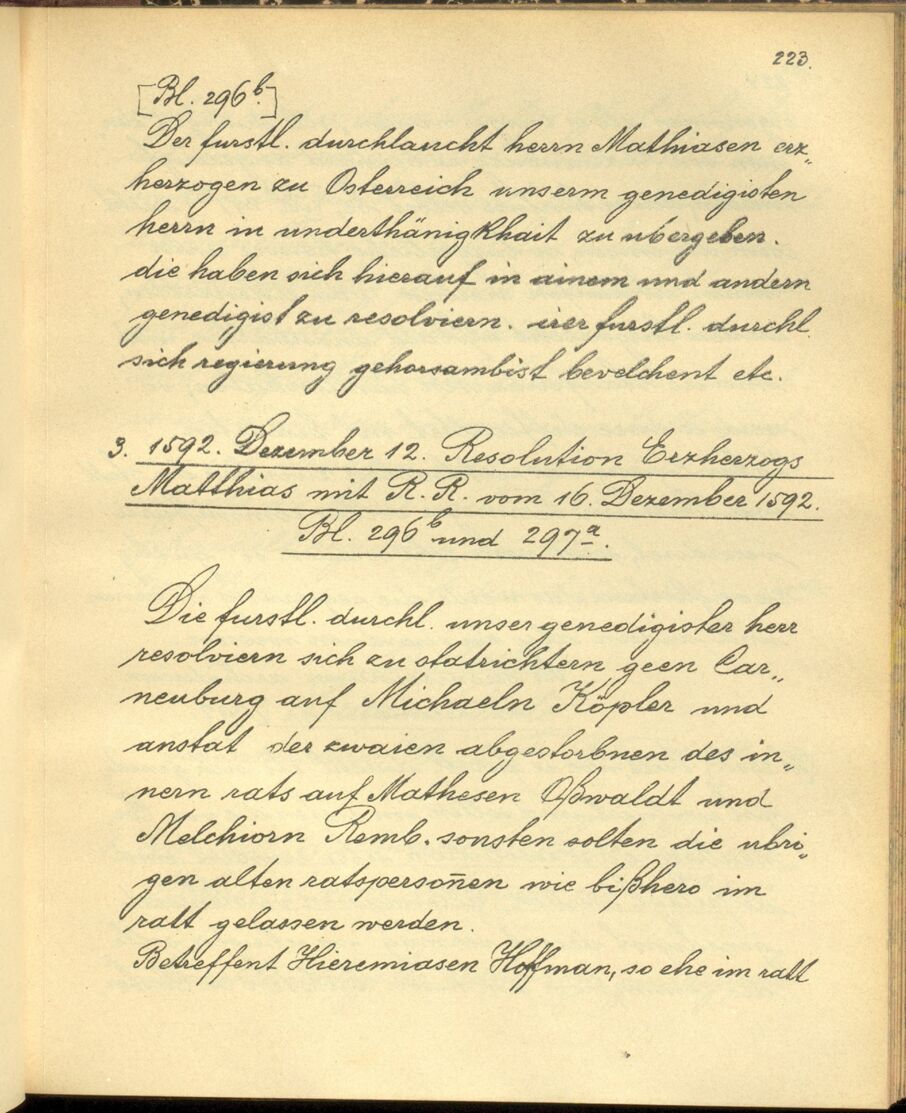 223.
[Bl. 296b.]
Der furstl. durchlaucht herrn Mathiasen erz„
herzogen zu Osterreich unserm genedigisten
herrn in underthänigkhait zu ubergeben.
die haben sich hierauf in ainem und andern
genedigist zu resolviern. irer furstl. durchl.
sich regierung gehorsambist bevelchent etc.
3. 1592. Dezember 12. Resolution Erzherzogs
Matthias mit R. R. vom 16. Dezember 1592.
Bl. 296b und 297a.
Die furstl. durchl. unser genedigister herr
resolviern sich zu statrichtern geen Car„
neuburg auf Michaeln Köpler und
anstat der zwaien abgestorbnen des in„
nern rats auf Mathesen Oßwaldt und
Melchiorn Remb. sonsten solten die ubri„
gen alten ratsperson̄en wie bißhero im
ratt gelassen werden.
Betreffent Hieremiasen Hoffman, so ehe im ratt